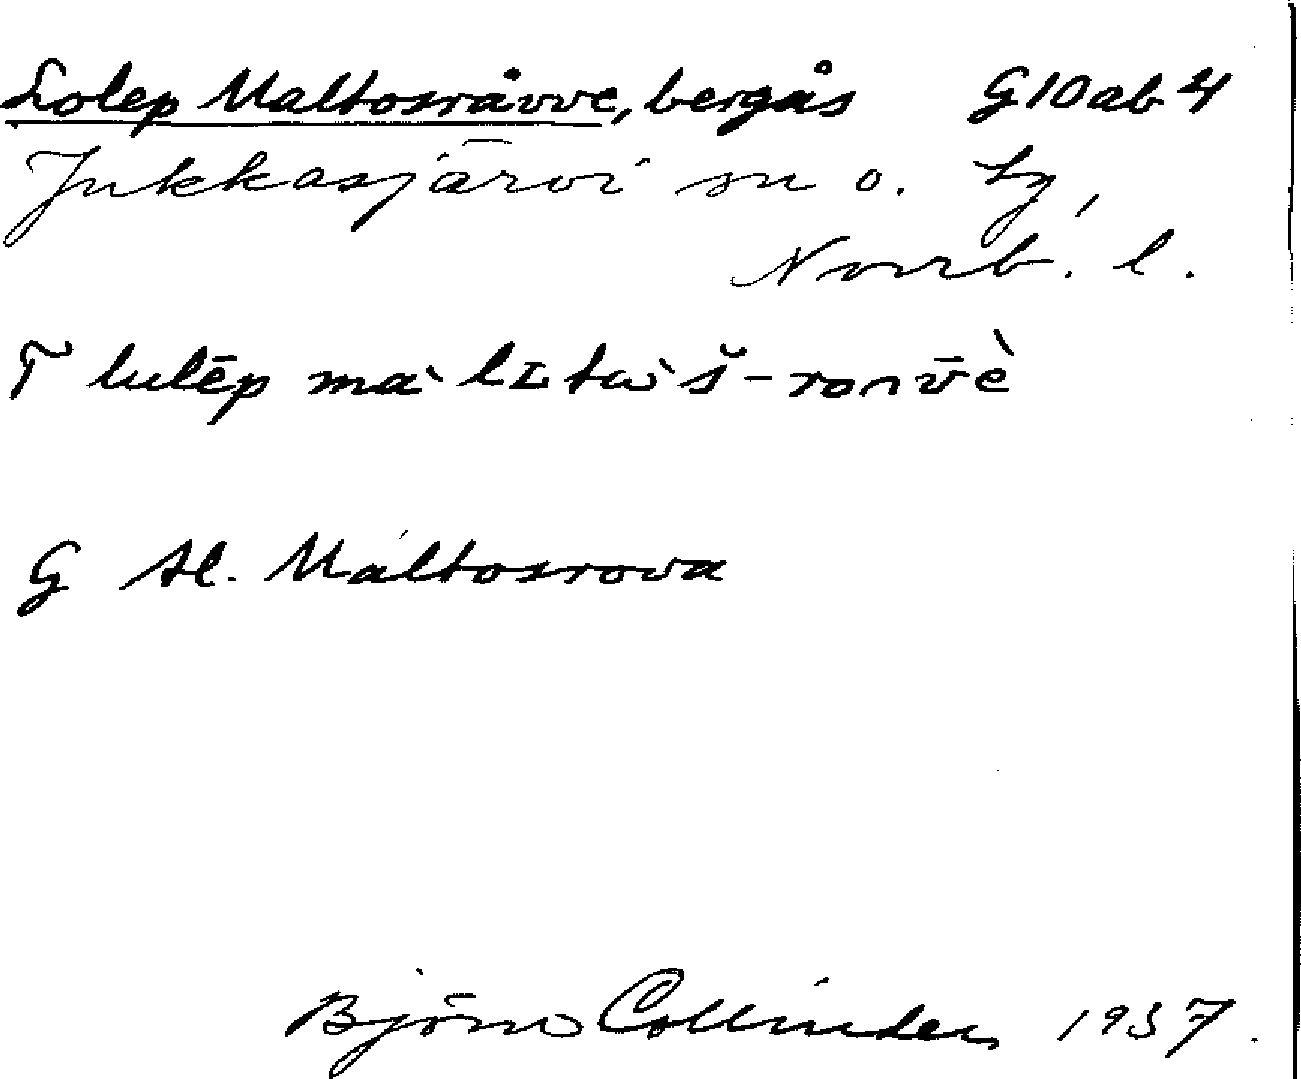 Lolep Maltosråvve, bergås G10ab4
Jukkasjärvi sn o. tg,
Norrb. l.
T lulēp
G tl. Máltosrova
Björn Collinder 1937.